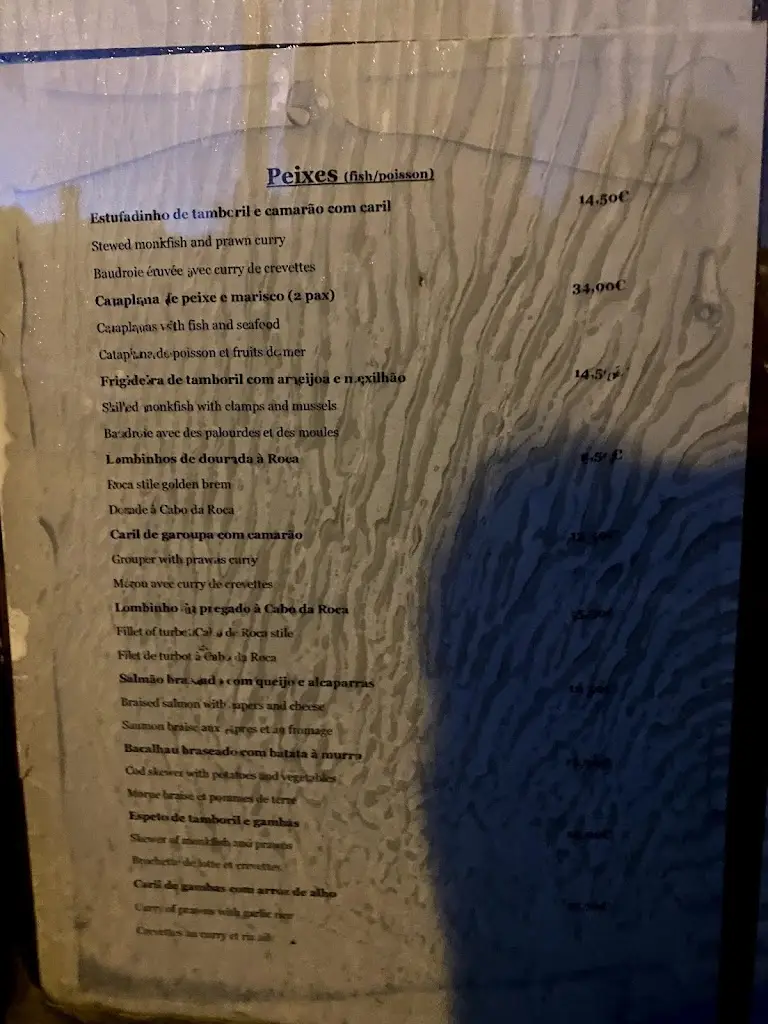 Peixes (fish/poisson)
Estufadinho de tamboril e camarão com caril 14,50€
Stewed monkfish and prawn curry
Baudroie étuvée avec curry de crevettes
Cataplana de peixe e marisco (2 pax) 34,00€
Cataplanas with fish and seafood
Cataplana de poisson et fruits de mer
Frigideira de tamboril com ameijoa e mexilhão
Skilled monkfish with clamps and mussels
Baudroie avec des palourdes et des moules
Lombinhos de dourada à Roca
Roca stile golden brem
Dorade à Cabo da Roca
Caril de garoupa com camarão
Grouper with prawns curry
Mérou avec curry de crevettes
Lombinho de pregado à Cabo da Roca
Fillet of turbot Cabo de Roca stile
Filet de turbot à Cabo da Roca
Salmão braseado com queijo e alcaparras
Braised salmon with capers and cheese
Saumon braise aux capres et au fromage
Bacalhau braseado com batata à murro
Cod skewer with potatoes and vegetables
Morue braise et pommes de terre
Espeto de tamboril e gambas
Skewer of monkfish and prawns
Brochette de lotte et crevettes
Caril de gambas com arroz de alho
Curry of prawns with garlic rice
Crevettes au curry et riz